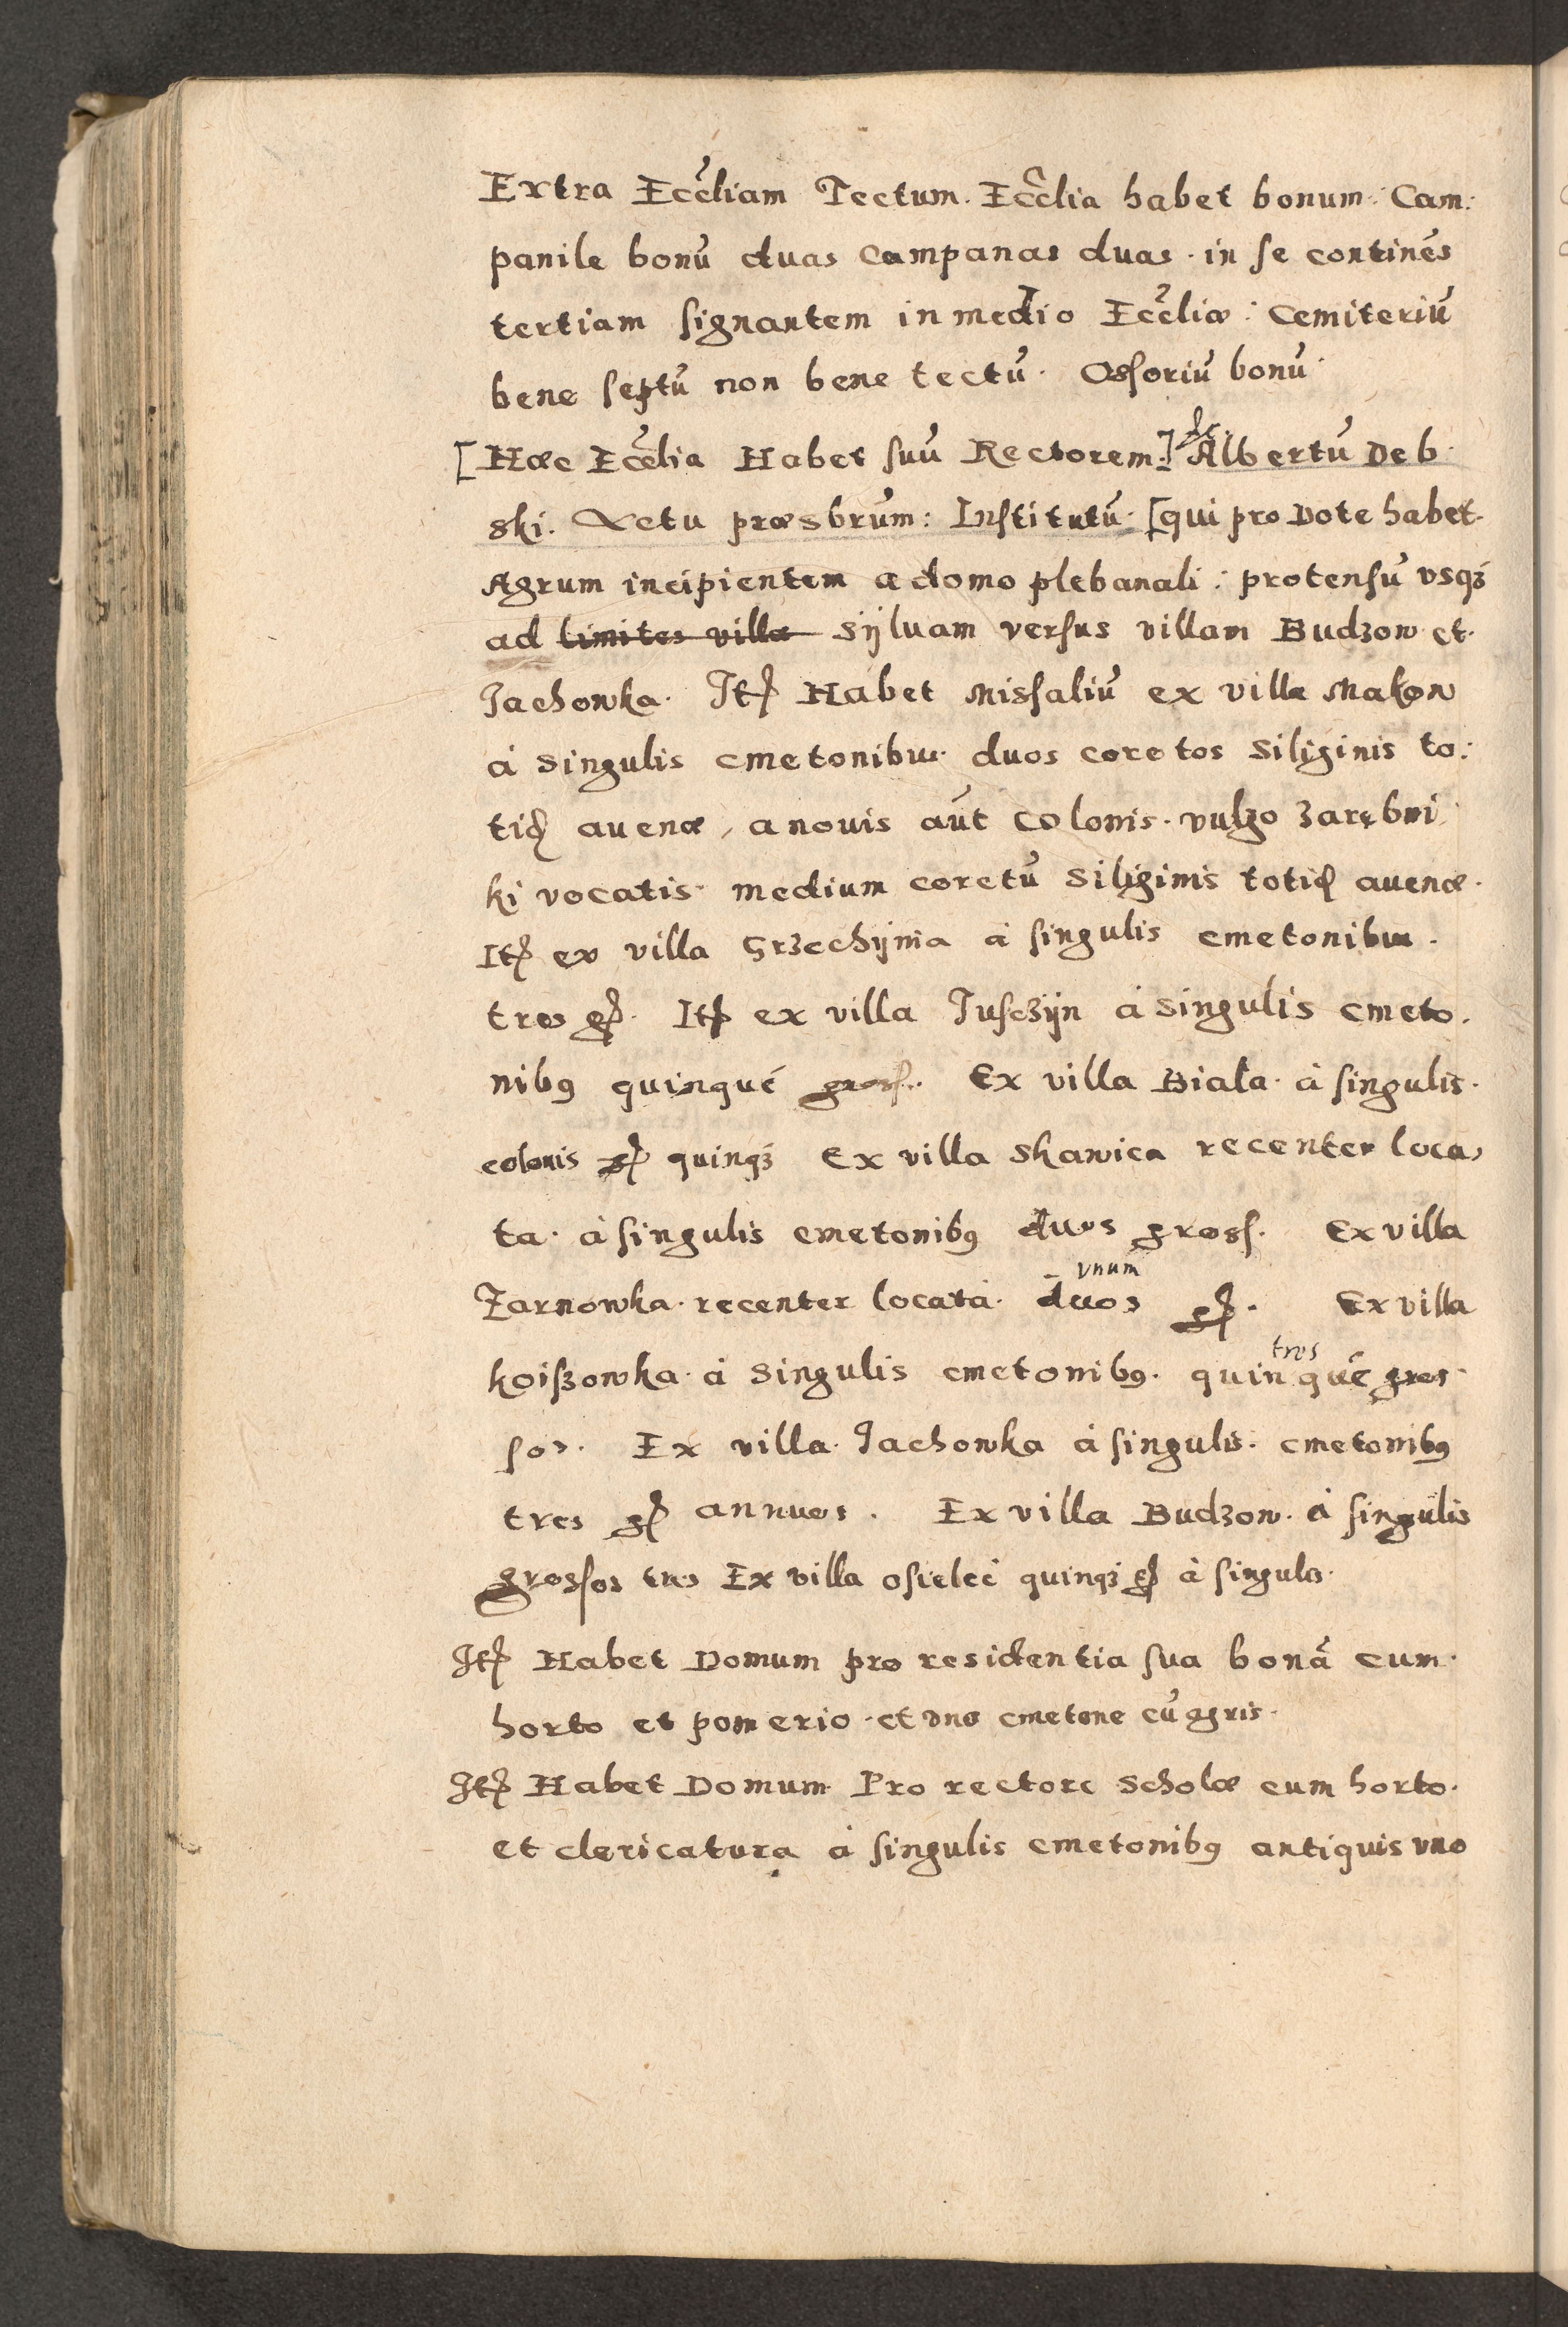 Extra Ecc̃liam Tectum. Ecc̃lia habet bonum: Cam:
panile bonũ duas Campanas duas. in se continẽs
tertiam signantem in medio Ecc̃liæ: Cemiteriũ
bene septũ non bene tectũ. Ossoriũ bonũ.
[Hæc Ecc̃lia Habet suũ Rectorem.] Albertũ Deb
ski. præsbrũm: Institutũ. [qui pro Dote habet.
Agrum incipientem a domo plebanali: protensũ usq3
ad limites villæ Sÿluam versus villam Budzow et.
Jachowka. Itẽ Habet Missaliũ ex villa Makow
à singulis cmetonibus. duos coretos siliginis to:
tid̃ auenæ, a nouis aũt colonis. vulgo zarębni
ki vocatis. medium coretũ siliginis totid̃ auenæ.
Itẽ ex villa Grzechÿnia à singulis cmetonibus.
tres gr̃. Itẽ ex villa Jusczÿn à singulis cmeto.
nib9 quinquè gross. Ex villa Biała. à singulis.
colonis gr̃ quinq3 Ex villa Skawica recenter loca,
ta. à singulis cmetonib9 duos gross. Ex villa
unum
Zarnowka. recenter locata. duos gr̃. Ex villa
tres
koiszowka. à singulis cmetonib9. quinquè gros
sos. Ex villa. Jachowka à singulis. cmetonib9
tres gr̃ annuos. Ex villa Budzow. à singulis
grossos tres Ex villa osielec quinq3 gr̃ à singulis.
Itẽ Habet Domum pro residentia sua bonã cum.
horto et pomerio. et uno cmetone cũ agris.
Itẽ Habet Domum Pro rectore Scholæ cum horto.
et clericatura à singulis cmetonib9 antiquis uno